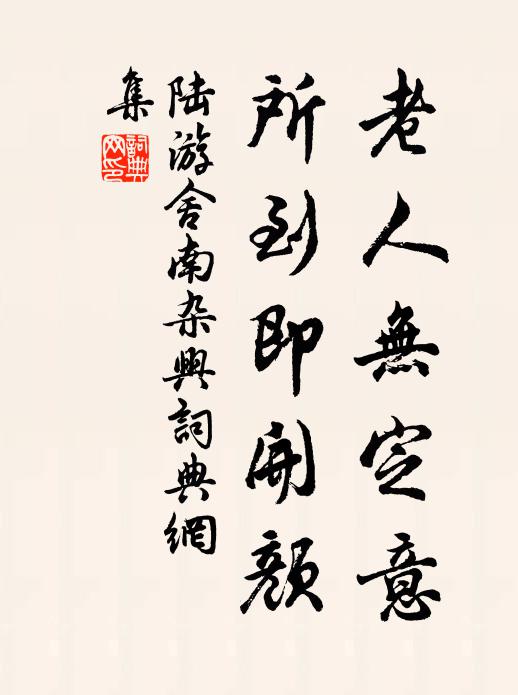 老人無定意
所到即開顏
陆游舍南杂興詞典網
集
詞典
网印